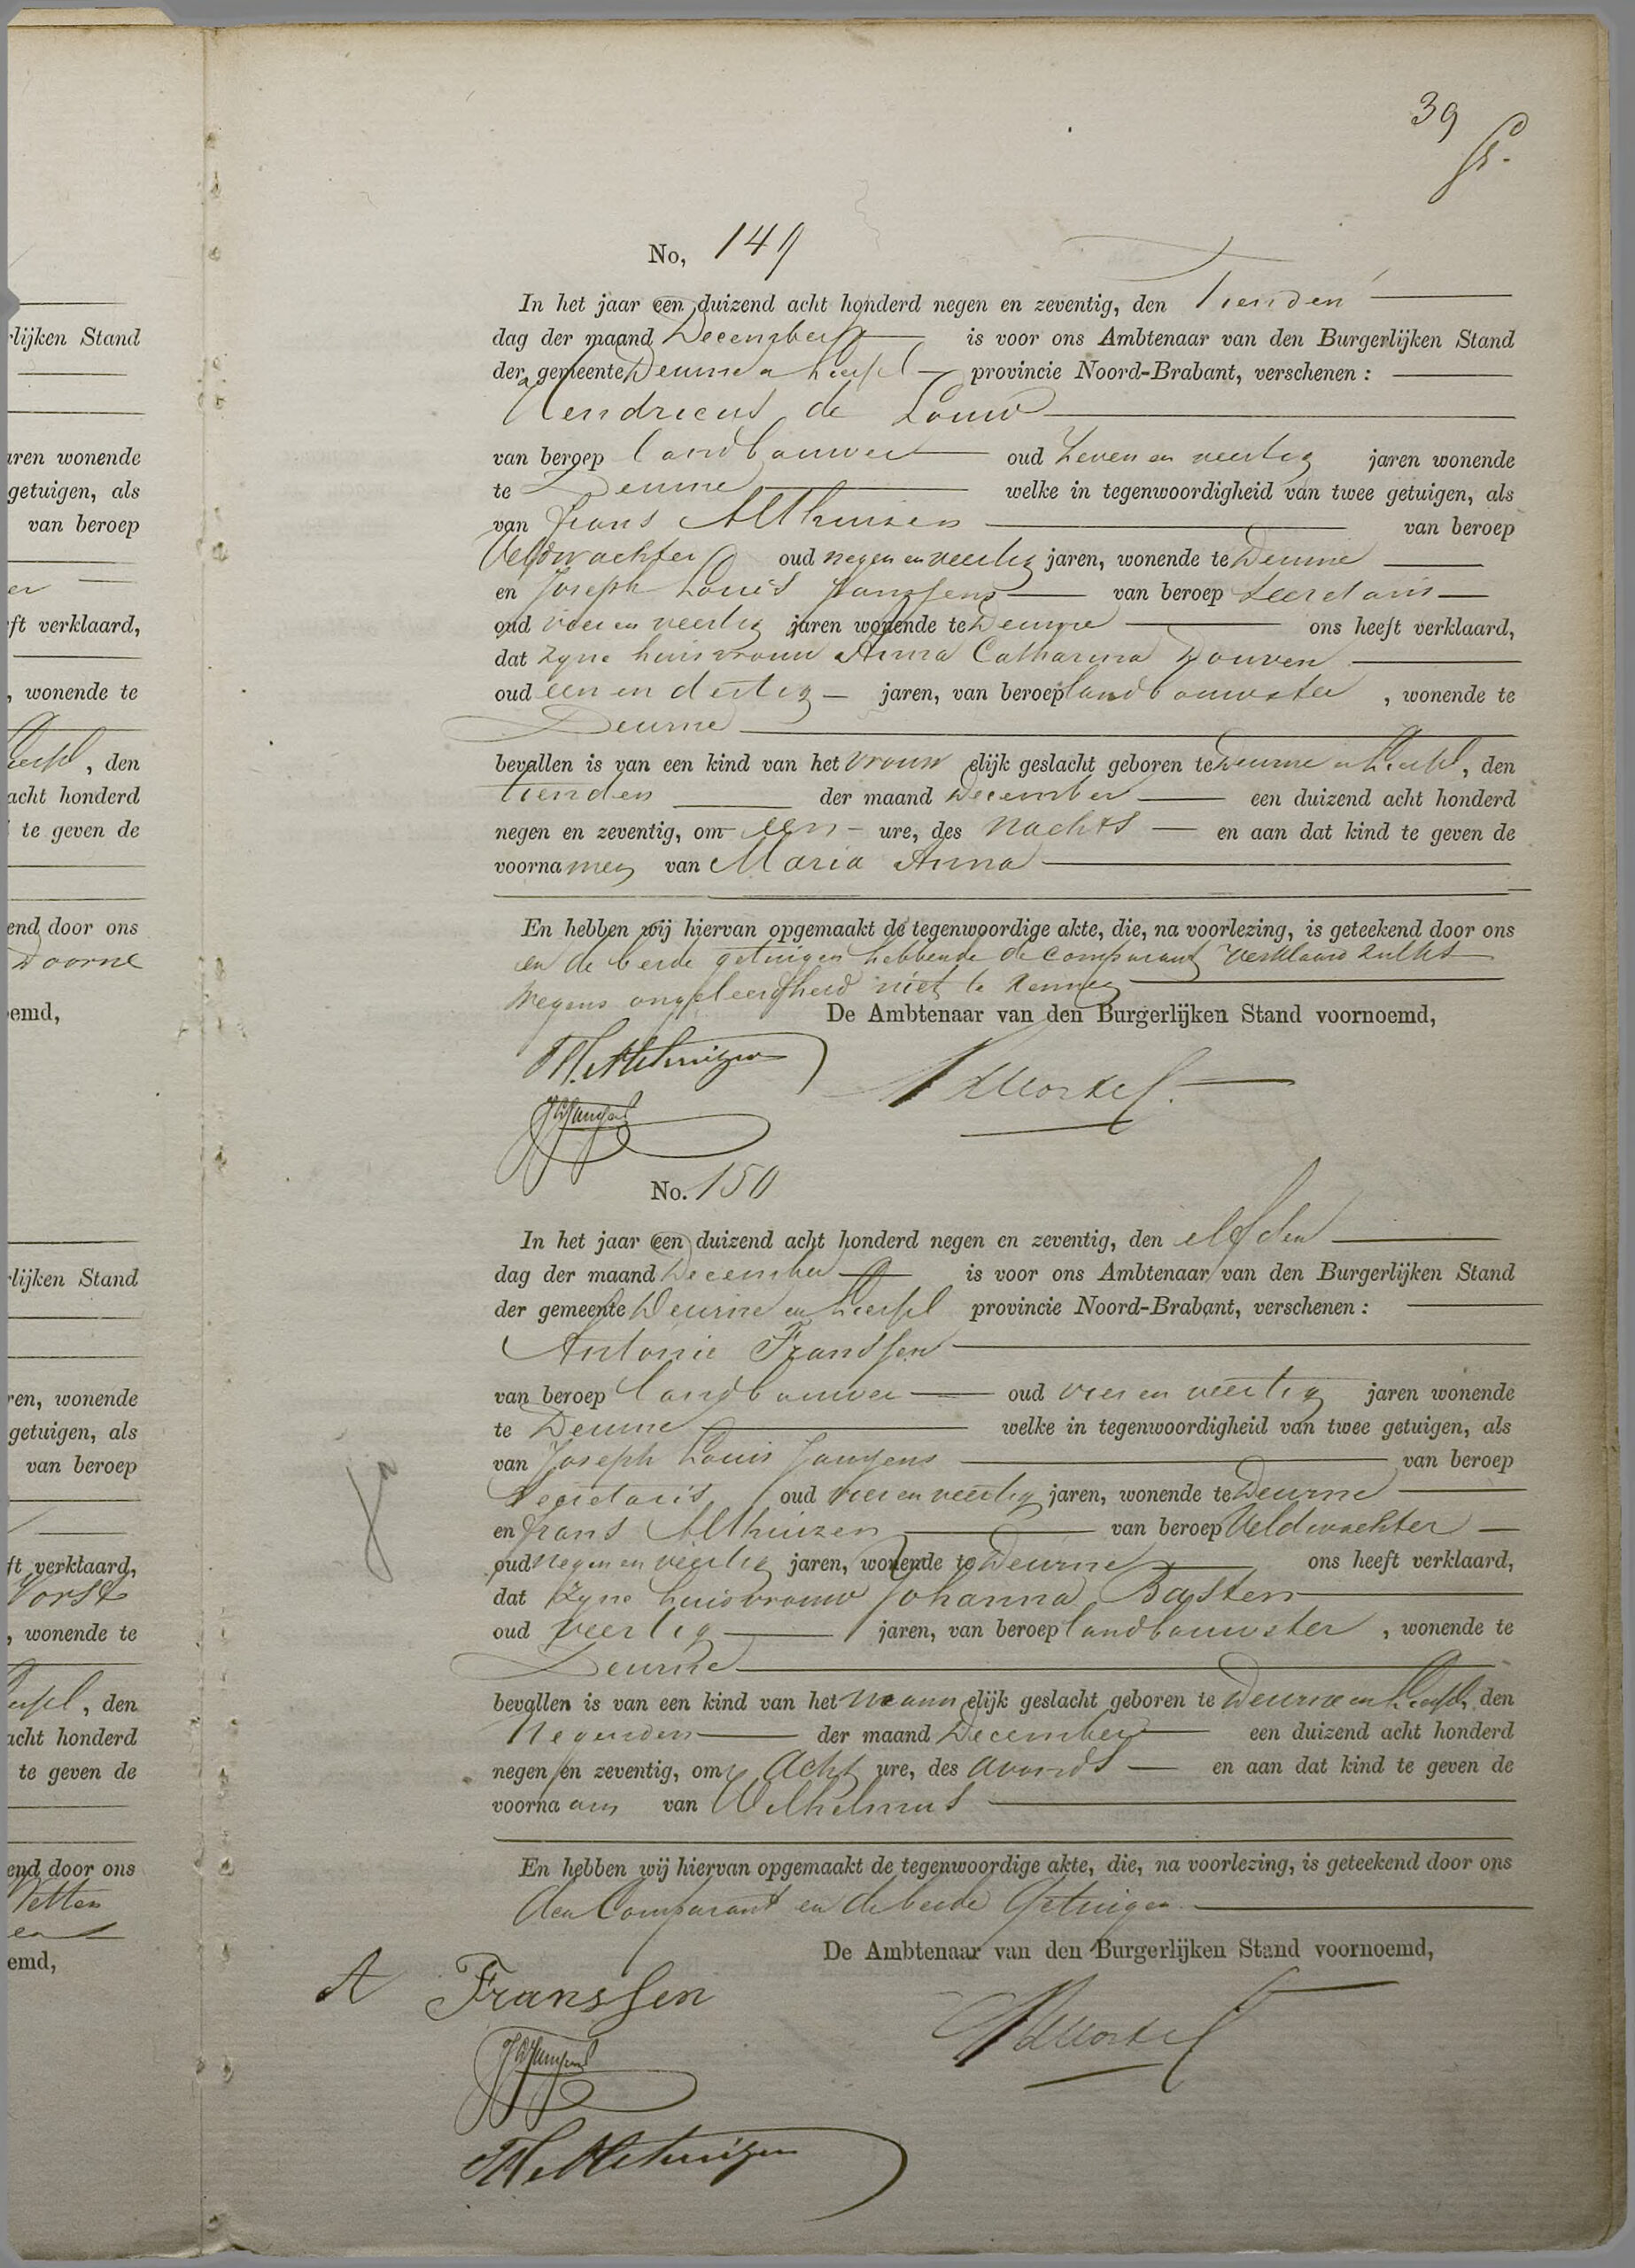 39
No, 149
In het jaar een duizend acht honderd negen en zeventig, den Tienden
dag der maand December is voor ons Ambtenaar van den Burgerlijken Stand
der gemeente Deurne en Liessel provincie Noord-Brabant, verschenen :
Hendricus de Louw
van beroep landbouwer oud Zeven en veertig jaren wonende
te Deurne welke in tegenwoordigheid van twee getuigen, als
van Frans Althuizen van beroep
Veldwachter oud negen en veertig jaren, wonende te Deurne
en Joseph Louis Janssens van beroep Secretaris
oud vier en veertig jaren wonende te Deurne ons heeft verklaard,
dat zyne huisvrouw Anna Catharina Douven
oud een en dertig jaren, van beroep landbouwster , wonende te
Deurne
bevallen is van een kind van het vrouw elijk geslacht geboren te Deurne en Liessel, den
tienden der maand December een duizend acht honderd
negen en zeventig, om een ure, des nachts en aan dat kind te geven de
voorna men van Maria Anna
En hebben wij hiervan opgemaakt de tegenwoordige akte, die, na voorlezing, is geteekend door ons
en de beide getuigen hebbende de comparant verklaard zulks
wegens ongeleerdheid niet te kennen
De Ambtenaar van den Burgerlijken Stand voornoemd,
Althuizen
JLJanssens
No. 150
In het jaar een duizend acht honderd negen en zeventig, den elfden
dag der maand December is voor ons Ambtenaar van den Burgerlijken Stand
der gemeente Deurne en Liessel provincie Noord-Brabant, verschenen :
Antonie Franssen
van beroep landbouwer oud vier en veertig jaren wonende
te Deurne welke in tegenwoordigheid van twee getuigen, als
van Joseph Louis Janssens van beroep
Secretaris oud vier en veertig jaren, wonende te Deurne
en Frans Althuizen van beroep Veldwachter
oud negen en veertig jaren, wonende te Deurne ons heeft verklaard,
dat zyne huisvrouw Johanna Basten
oud veertig jaren, van beroep landbouwster , wonende te
Deurne
bevallen is van een kind van het mann elijk geslacht geboren te Deurne en Liessel, den
Negenden der maand December een duizend acht honderd
negen en zeventig, om Acht ure, des avonds en aan dat kind te geven de
voorna am van Wilhelmus
En hebben wij hiervan opgemaakt de tegenwoordige akte, die, na voorlezing, is geteekend door ons
den Comparant en de beide Getuigen
De Ambtenaar van den Burgerlijken Stand voornoemd,
A Franssen
JLJanssens
Althuizen